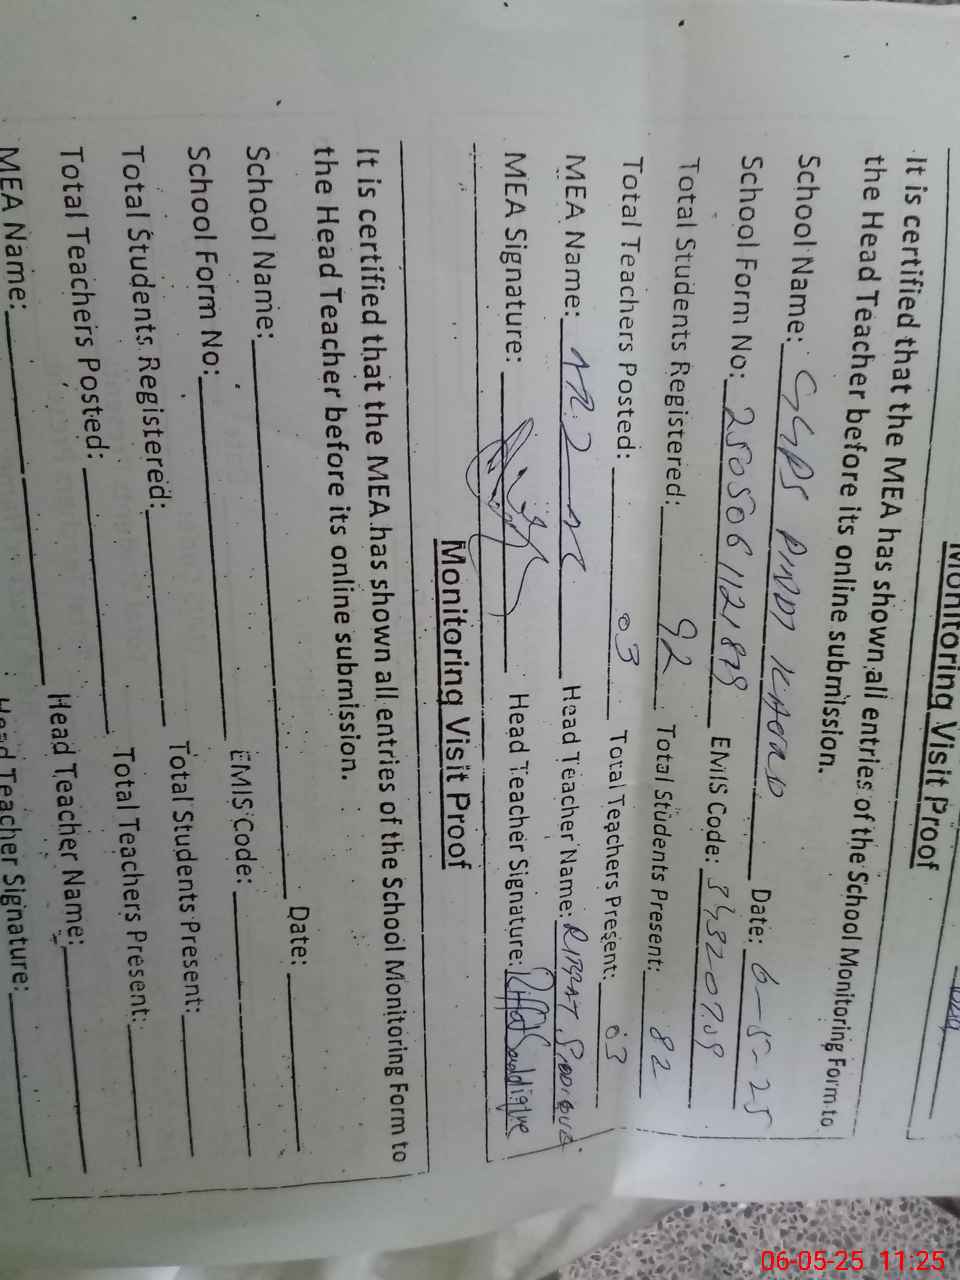 Monitoring Visit Proof
It is certified that the MEA has shown all entries of the School Monitoring Form to
the Head Teacher before its online submission.
School Name: GGPS PINDI KHOKAD Date: 6-5-25
School Form No: 2505061121879 EMIS Code: 34320709
Total Students Registered: 92 Total Students Present: 82
Total Teachers Posted: 03 Total Teachers Present: 03
MEA Name: Head Teacher Name: RIFFAT
MEA Signature: Head Teacher Signature: Riffat Saddique
Monitoring Visit Proof
It is certified that the MEA has shown all entries of the School Monitoring Form to
the Head Teacher before its online submission.
School Name: Date:
School Form No: EMIS Code:
Total Students Registered: Total Students Present:
Total Teachers Posted: Total Teachers Present:
MEA Name: Head Teacher Name:
Head Teacher Signature:
06-05-25 11:25